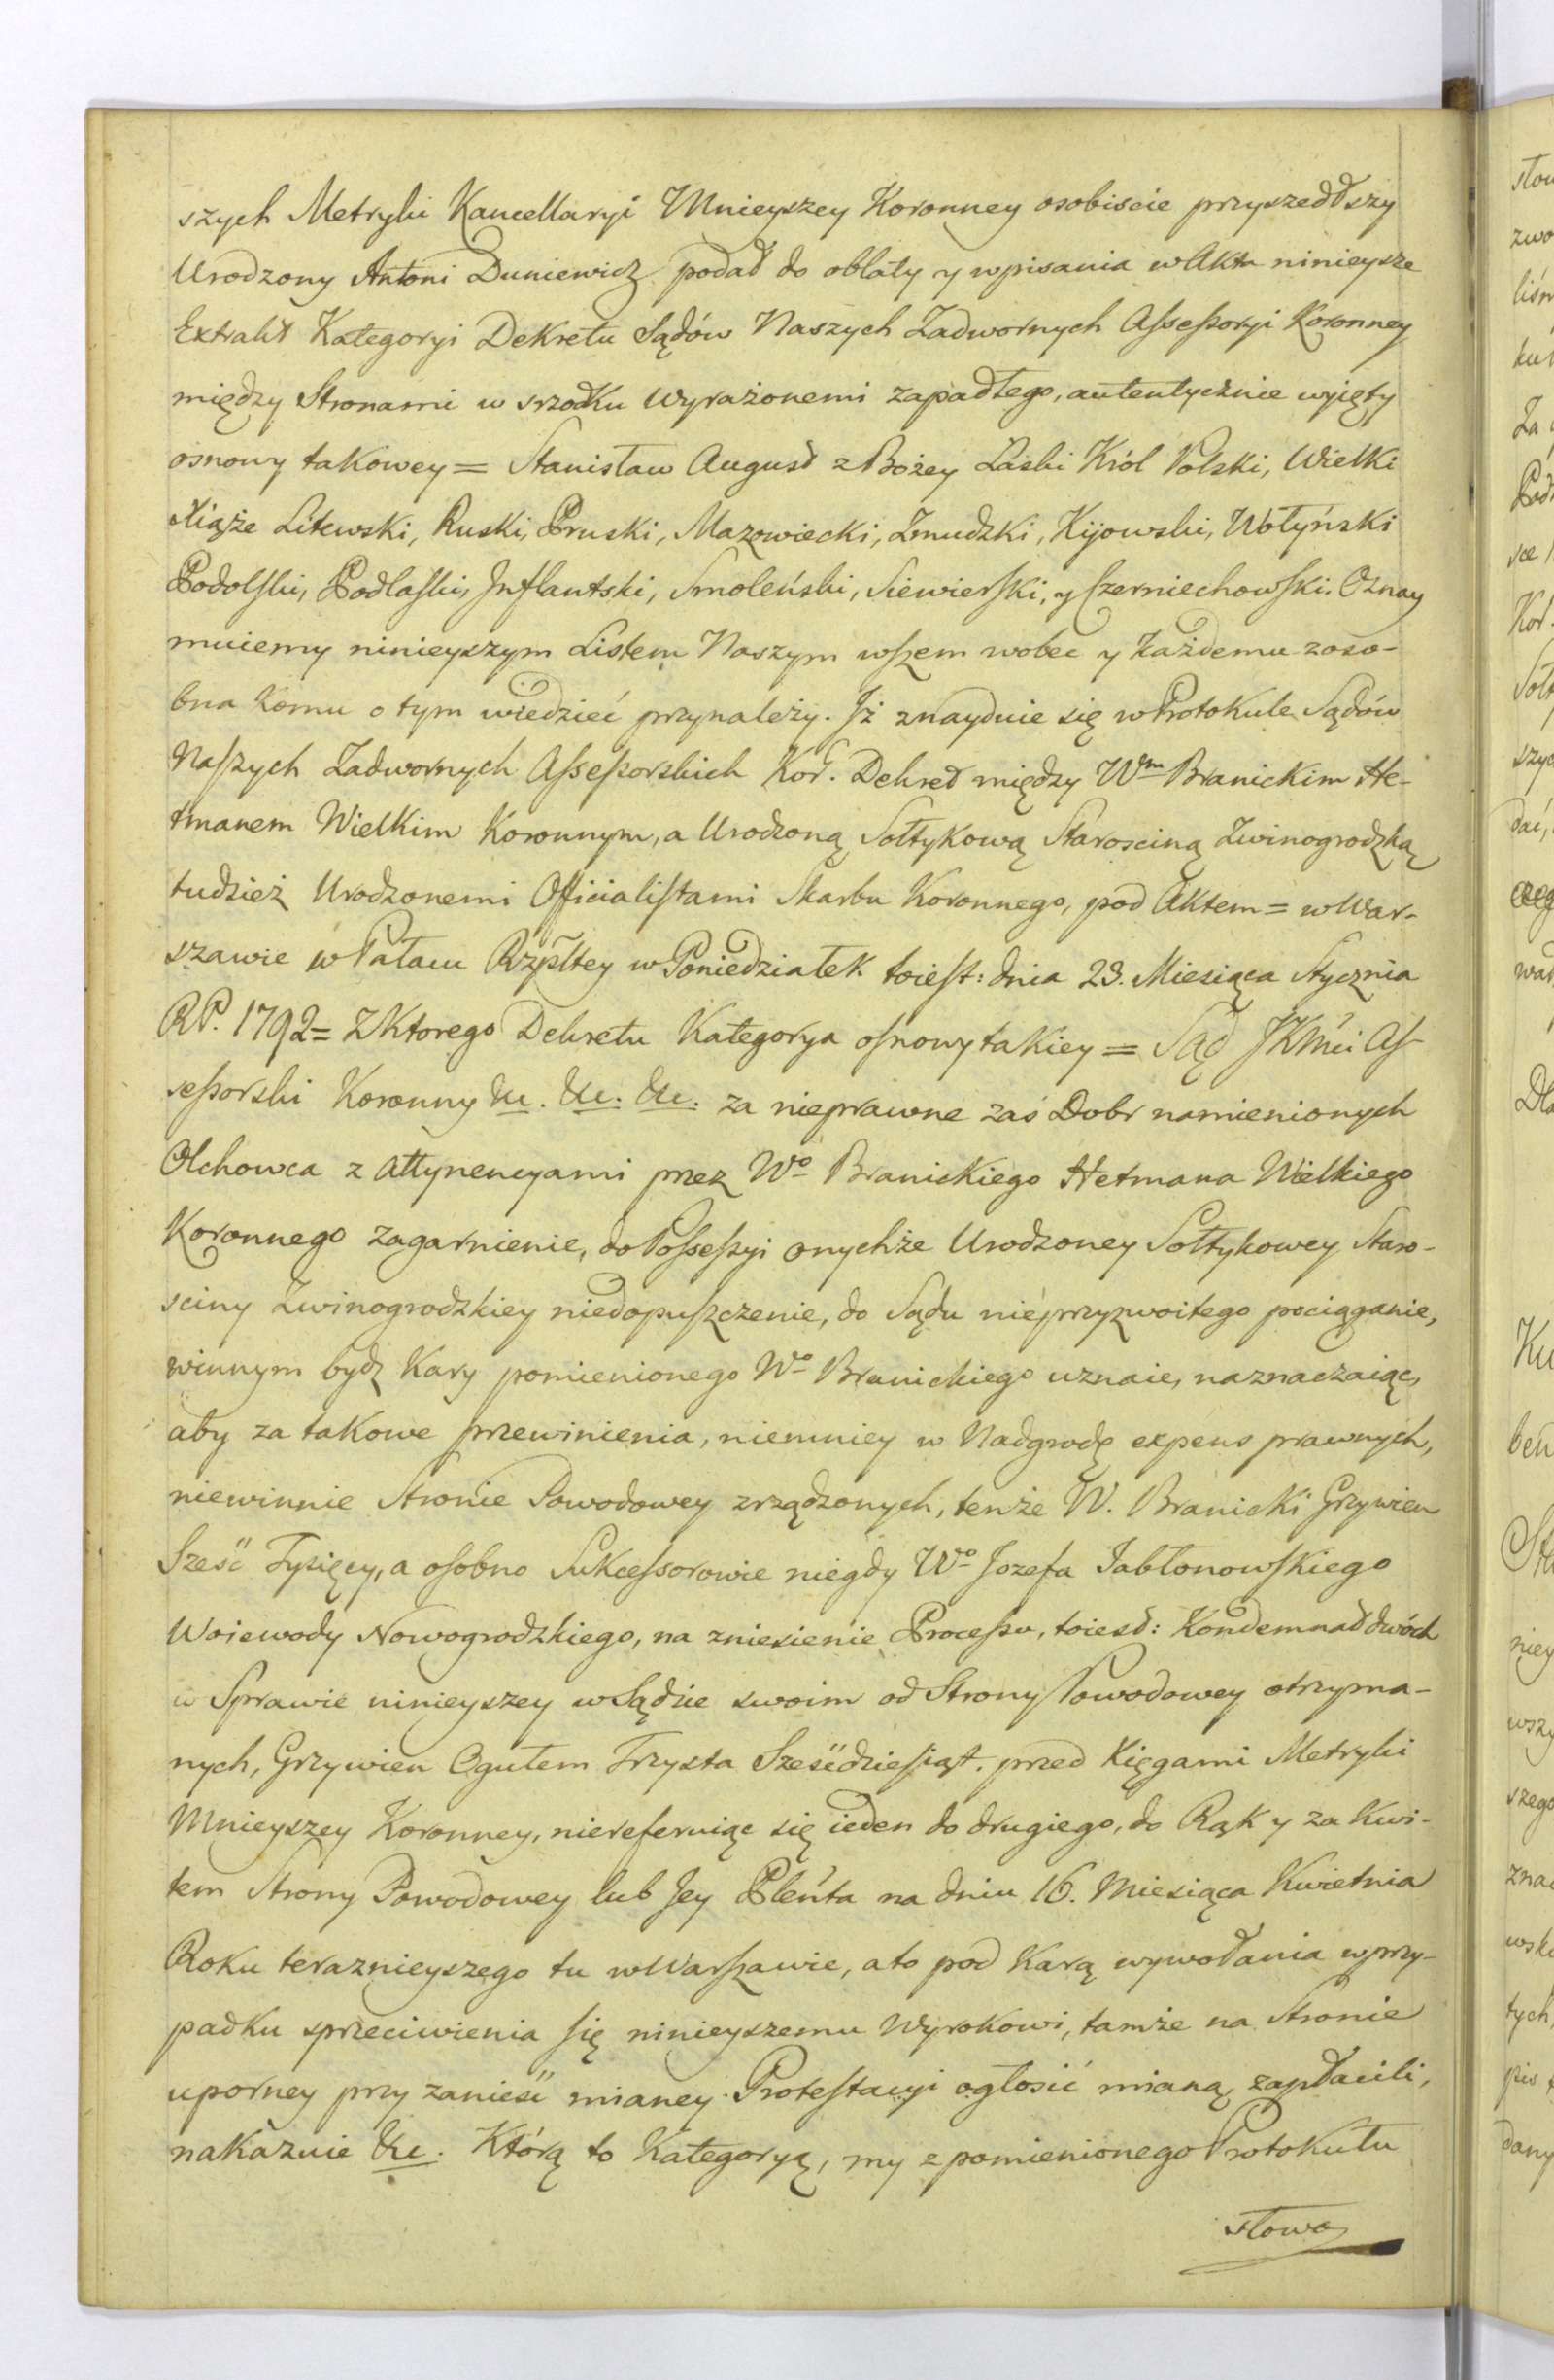 szych Metryki Kancellaryi Mnieyszey Koronney osobiscie przyszedłszy
Urodzony Antoni Duniewicz podał do oblaty y wpisania w Akta ninieysze
Extrakt Kategoryi Dekretu Sądów Naszych Zadwornych Assessoryi Koronney
między Stronami w srzodku wyrażonemi zapadłego, autentycznie wyięty
osnowy takowey = Stanisław August z Bożey Łaski Król Polski, Wielki
Xiąże Litewski, Ruski, Pruski, Mazowiecki, Zmudzki, Kijowski, Wołyński
Podolski, Podlaski, Inflantski, Smoleński, Siewierski, y Czerniechowski. Oznay
muiemy ninieyszym Listem Naszym wszem wobec y każdemu zoso-
bna komu o tym wiedzieć przynależy. Iż znayduie się w Protokule Sądów
Naszych Zadwornych Assessorskich Kor. Dekret między Wm Branickim He-
tmanem Wielkim Koronnym, a Urodzoną Sołtykową Starosciną Zwinogrodzką
tudzież Urodzonemi Officialistami Skarbu Koronnego, pod Aktem = w War-
szawie w Pałacu Rzpltey w Poniedziałek toiest: dnia 23. Miesiąca Stycznia
RP. 1792 = Z Ktorego Dekretu Kategorya osnowy takiey = Sąd JKMci As-
sessorski Koronny &c. &c. &c. za nieprawne zaś Dobr namienionych
Olchowca z Attynencyami przez Wo Branickiego Hetmana Wielkiego
Koronnego zagarnienie, do Possessyi onychże Urodzoney Sołtykowey Staro-
sciny Zwinogrodzkiey niedopuszczenie, do Sądu nieprzyzwoitego pociąganie,
winnym bydz Kary pomienionego Wo Branickiego uznaie, naznaczaiąc,
aby za takowe przewinienia, niemniey w Nadgrodę expens prawnych,
niewinnie Stronie Powodowey zrządzonych, tenże W. Branicki Grzywien
Sześć Tysięcy, a osobno Sukcessorowie niegdy Wo Jozefa Jabłonowskiego
Woiewody Nowogrodzkiego, na zniesienie Processu, toiest: Kondemnad dwóch
w Sprawie ninieyszey w Sądzie swoim od Strony Powodowey otrzyma-
nych, Grzywien Ogułem Trzysta Sześćdziesiąt. przed Xięgami Metryki
Mnieyszey Koronney, niereferuiąc się ieden do drugiego, do Rąk y za Kwi-
tem Strony Powodowey lub Jey Pleńta na dniu 16. Miesiąca Kwietnia
Roku teraznieyszego tu w Warszawie, a to pod Karą wywołania w przy-
padku sprzeciwienia się ninieyszemu Wyrokowi, tamże na Stronie
uporney przy zanieść mianey Protestacyi ogłosić mianą, zapłacili,
nakazuie &c. Którą to Kategoryą, my z pomienionego Protokułu
słowo